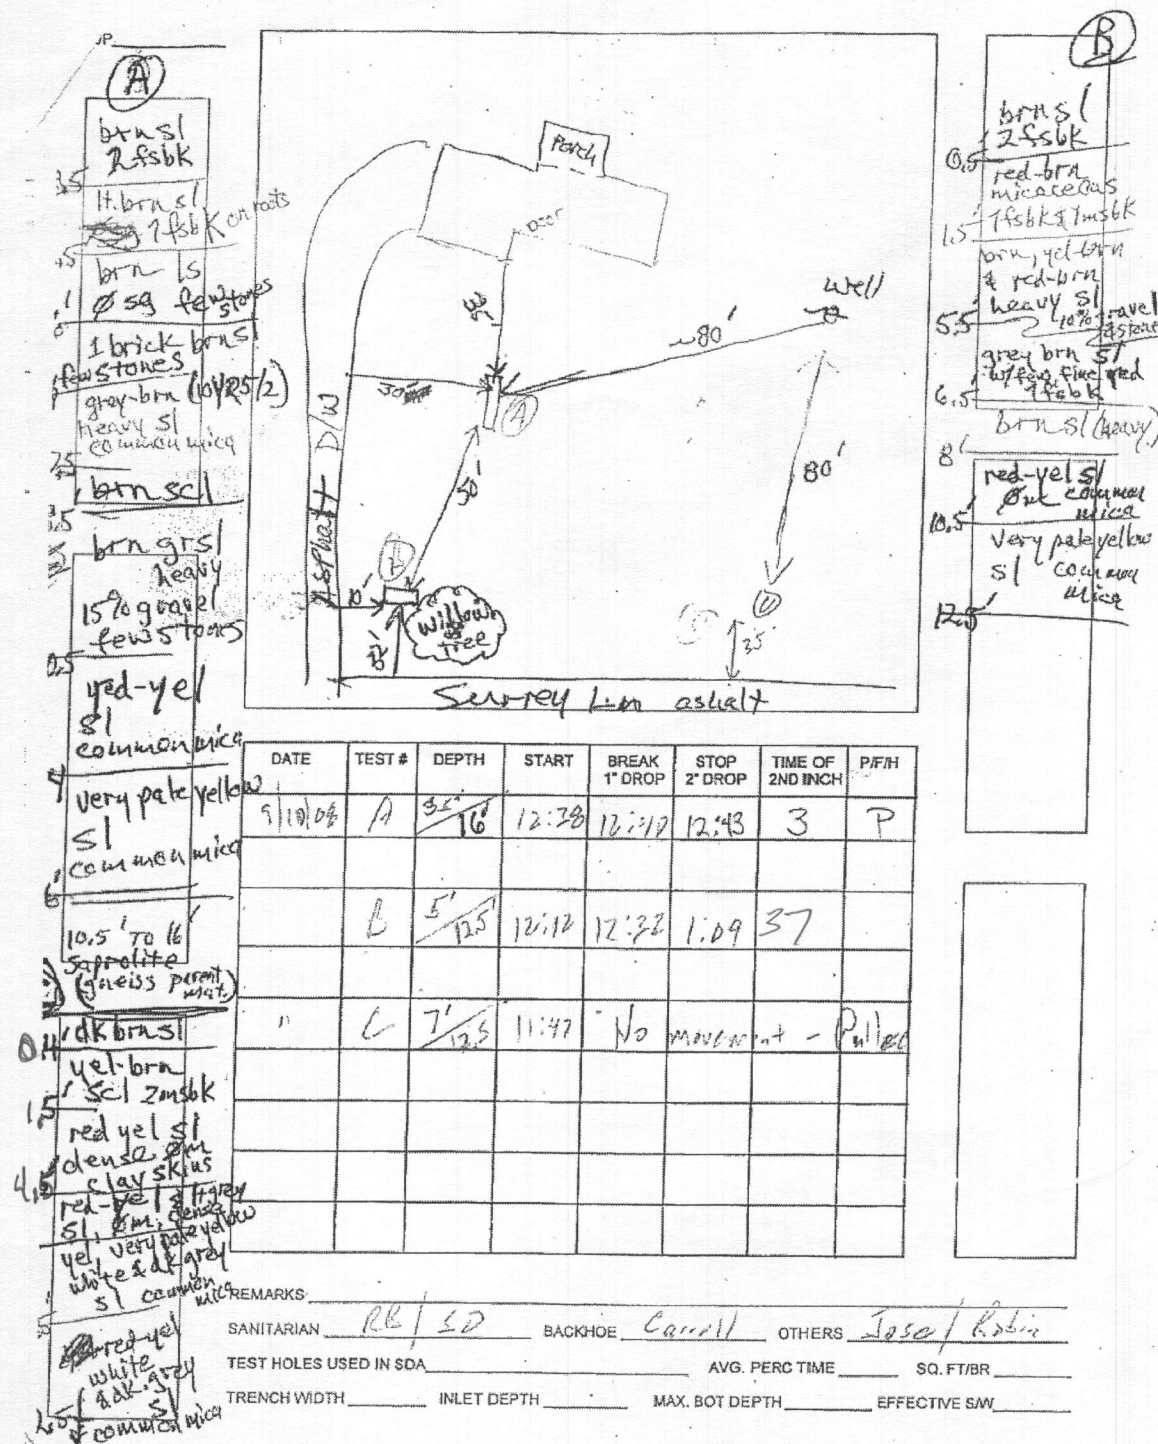 A
brn sl
2fsbk
lt. brn sl
1fsbk
brn ls
Ø sg few stones
1 brick brn sl
few stones
grey-brn (10YR5/2)
heavy sl
common mica
brn scl
brn grsl
heavy
15% gravel
few stones
red-yel
sl
common mica
very pale yellow
sl
common mica
10.5' TO 16'
saprolite
(gneiss parent
mat.)
dk brn sl
yel-brn
scl 2msbk
1.5'
red yel sl
dense Øm
clay skins
4.5
red-yel & lt grey
sl, Øm, dense
yel, very pale yellow
white & dk grey
sl common
mica
red-yel
white
& dk. grey
sl
common mica
Porch
Door
35'
Well
~80'
30'
A
50'
80'
Asphalt D/W
B
10'
Willow
tree
35'
Surrey Ln asphalt
B
brn sl
2fsbk
0.5'
red-brn
micaceous
1fsbk & 1msbk
1.5'
brn, yel-brn
& red-brn
heavy sl
5.5'
10% gravel
& stones
grey brn sl
w/few fine red
1fsbk
6.5'
brn sl (heavy)
8'
red-yel sl
Øm common
mica
10.5'
very pale yellow
sl common
mica
12.5'
DATE TEST # DEPTH START BREAK 1" DROP STOP 2" DROP TIME OF 2ND INCH P/F/H
9/10/08 A 3.5'/16' 12:38 12:40 12:43 3 P
B 5'/12.5' 12:12 12:32 1:09 37
" C 7'/12.5 11:47 No movement - Pulled
REMARKS
SANITARIAN RB / SD BACKHOE Carroll OTHERS Jose / Robin
TEST HOLES USED IN SDA AVG. PERC TIME SQ. FT/BR
TRENCH WIDTH INLET DEPTH MAX. BOT DEPTH EFFECTIVE S/W